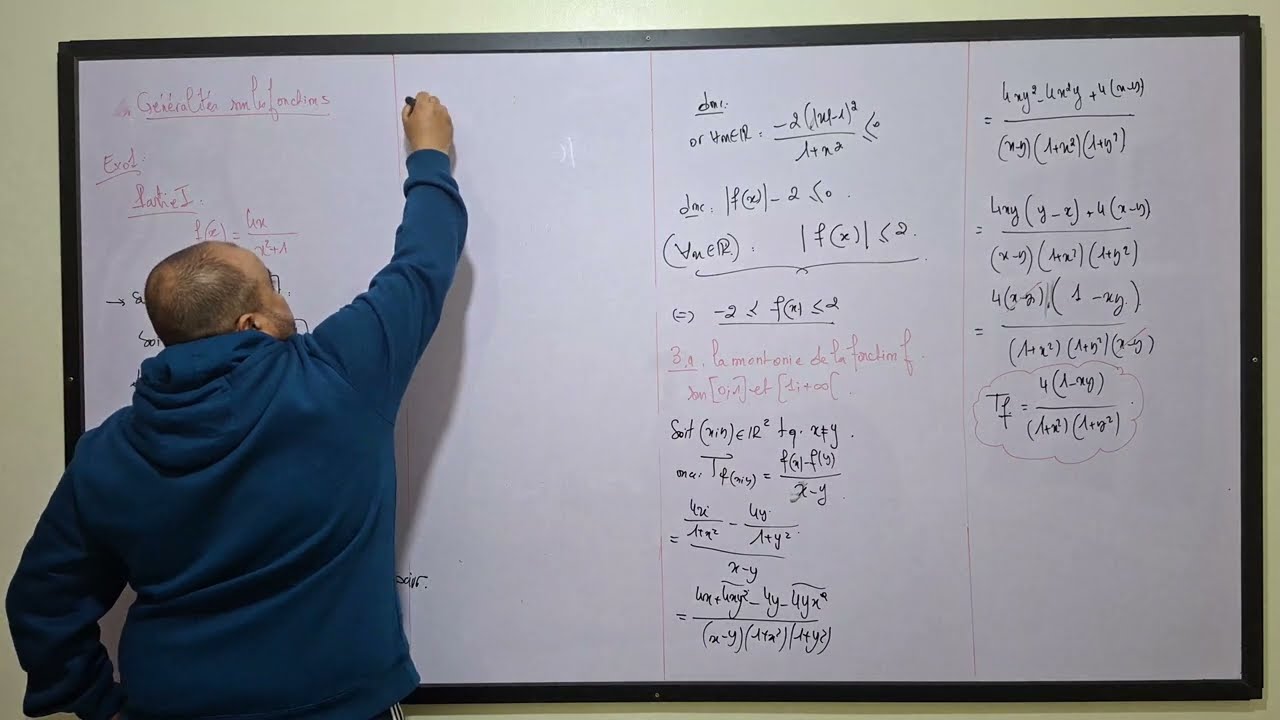 Généralités sur les fonctions
Exo1:
Partie I:
f(x) = 4x / x²+1
→ S
Soi
donc:
or ∀x∈ℝ: -2(|x|-1)² / 1+x² ≤ 0
donc: |f(x)| - 2 ≤ 0.
(∀x∈ℝ): |f(x)| ≤ 2.
⟺ -2 ≤ f(x) ≤ 2
3.a. la monotonie de la fonction f.
sur [0;1] et [1;+∞[.
Soit (x;y)∈ℝ² tq. x≠y.
ona: T f(x;y) = f(x)-f(y) / x-y.
= 4x / 1+x² - 4y / 1+y² / x-y
= 4x+4xy²-4y-4yx² / (x-y)(1+x²)(1+y²)
= 4xy²-4x²y+4(x-y) / (x-y)(1+x²)(1+y²)
= 4xy(y-x)+4(x-y) / (x-y)(1+x²)(1+y²)
= 4(x-y)(1-xy) / (1+x²)(1+y²)(x-y)
Tf = 4(1-xy) / (1+x²)(1+y²).